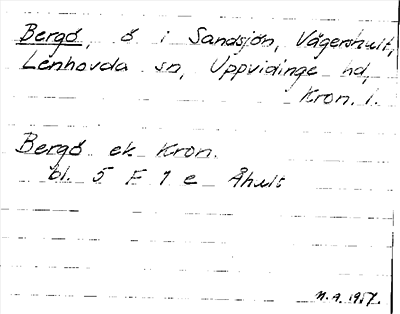 Bergö, ö i Sandsjön, Vägershult,
Lenhovda sn, Uppvidinge hd,
Kron. l.
Bergö ek Kron.
bl. 5 F 1 e Åhult
N.A. 1957.